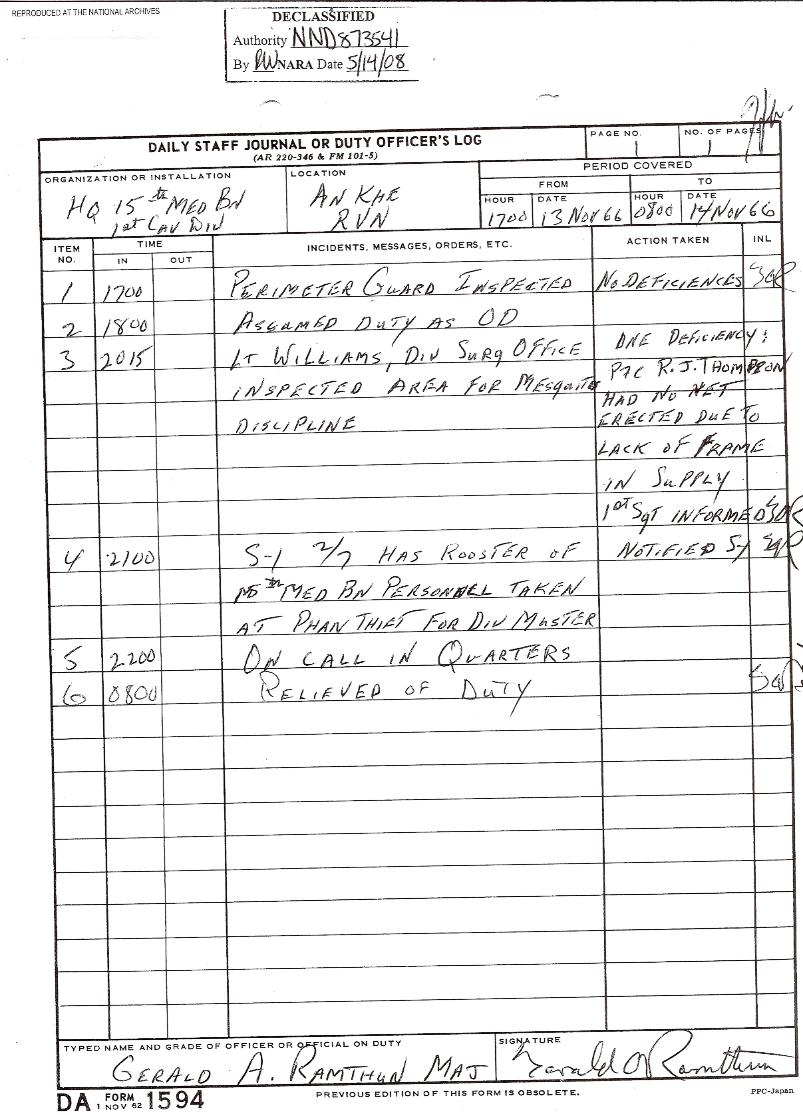 REPRODUCED AT THE NATIONAL ARCHIVES
DECLASSIFIED
Authority NND873541
By NARA Date 5/14/08
DAILY STAFF JOURNAL OR DUTY OFFICER'S LOG
(AR 220-346 & FM 101-5)
PAGE NO.
1
NO. OF PAGES
1
ORGANIZATION OR INSTALLATION
HQ 15th MED BN
1st CAV DIV
LOCATION
AN KHE
RVN
PERIOD COVERED
FROM
TO
HOUR
1700
DATE
13 NOV 66
HOUR
0800
DATE
14 NOV 66
ITEM NO.
TIME
IN
OUT
INCIDENTS, MESSAGES, ORDERS, ETC.
ACTION TAKEN
INL
1 1700 PERIMETER GUARD INSPECTED NO DEFICIENCES
2 1800 ASSUMED DUTY AS OD
3 2015 LT WILLIAMS, DIV SURG OFFICE
INSPECTED AREA FOR MESQUITO
DISCIPLINE
ONE DEFICIENCY:
PFC R.J. THOMPSON
HAD NO NET
ERECTED DUE TO
LACK OF FRAME
IN SUPPLY
1ST SGT INFORMED
4 2100 S-1 2/7 HAS ROOSTER OF NOTIFIED S-1
15th MED BN PERSONNEL TAKEN
AT PHAN THIET FOR DIV MUSTER
5 2200 ON CALL IN QUARTERS
6 0800 RELIEVED OF DUTY
TYPED NAME AND GRADE OF OFFICER OR OFFICIAL ON DUTY
GERALD A. RAMTHUN MAJ
SIGNATURE
Gerald A Ramthun
DA FORM 1 NOV 62 1594
PREVIOUS EDITION OF THIS FORM IS OBSOLETE.
PPC-Japan